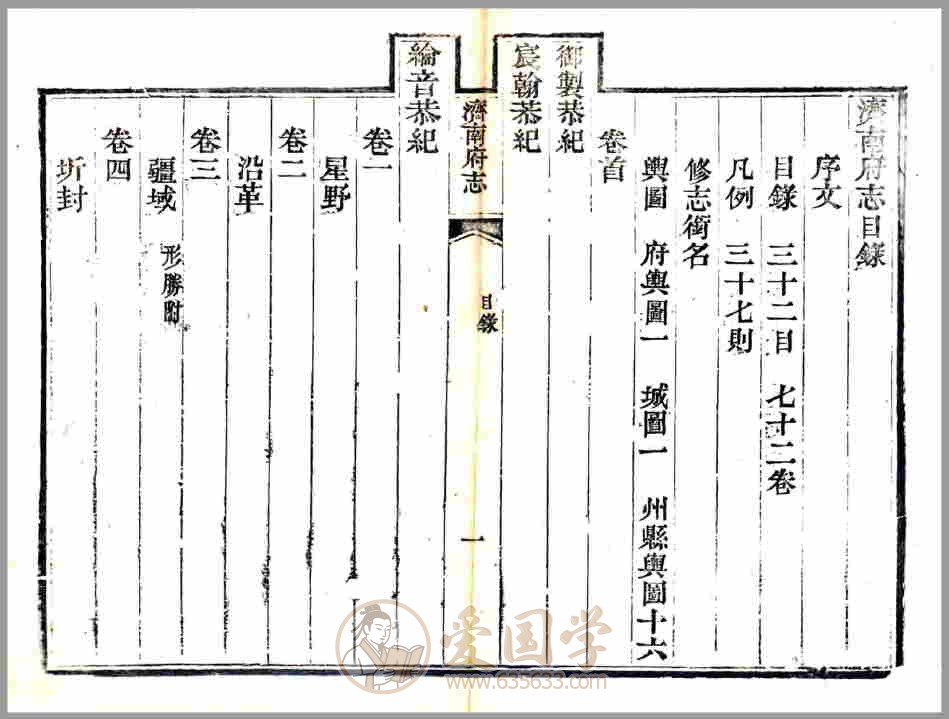 濟南府志目錄
序文
目錄 三十二目 七十二卷
凡例 三十七則
修志銜名
輿圖 府輿圖一 城圖一 州縣輿圖十六
卷首
御製恭紀
宸翰恭紀
濟南府志
目錄
一
綸音恭紀
卷一
星野
卷二
沿革
卷三
疆域 形勝附
卷四
圻封
爱国学
www.635633.com